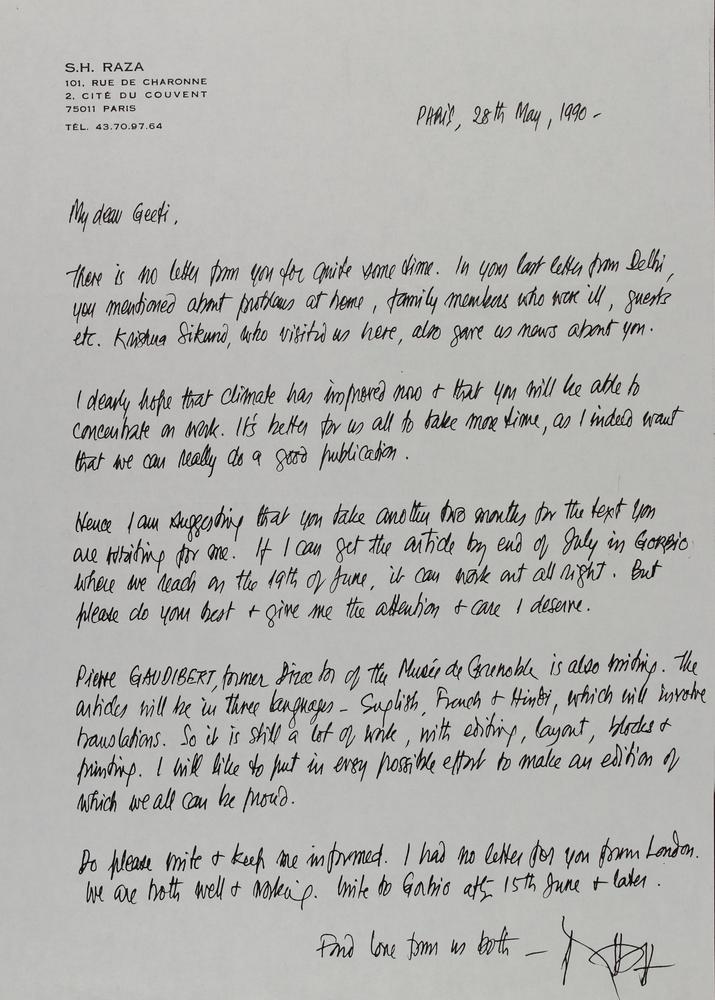 S.H. RAZA
101, RUE DE CHARONNE
2, CITÉ DU COUVENT
75011 PARIS
TÉL. 43.70.97.64
PARIS, 28th May, 1990 -
My dear Geeti,
There is no letter from you for quite some time. In your last letter from Delhi,
you mentioned about problems at home, family members who were ill, guests
etc. Krishna Sikund, who visited us here, also gave us news about you.
I dearly hope that climate has improved now + that you will be able to
concentrate on work. It's better for us all to take more time, as I indeed want
that we can really do a good publication.
Hence I am suggesting that you take another two months for the text you
are writing for me. If I can get the article by end of July in GORBIO
where we reach on the 19th of June, it can work out all right. But
please do your best + give me the attention + care I deserve.
Pierre GAUDIBERT, former Director of the Musée de Grenoble is also writing. The
articles will be in three languages - English, French + Hindi, which will involve
translations. So it is still a lot of work, with editing, layout, blocks +
printing. I will like to put in every possible effort to make an edition of
which we all can be proud.
Do please write + keep me informed. I had no letter for you from London.
We are both well + working. Write to Gorbio after 15th June + later.
Fond love from us both -